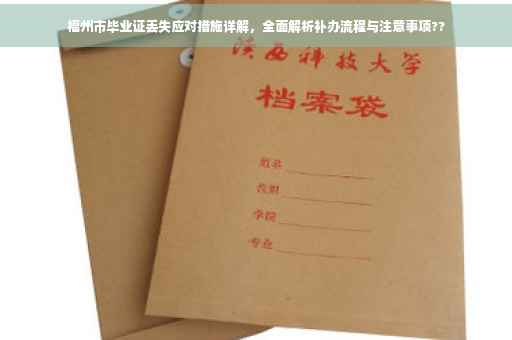 福州市毕业证丢失应对措施详解，全面解析补办流程与注意事项??
陕西科技大学
档案袋
姓名
学院
专业